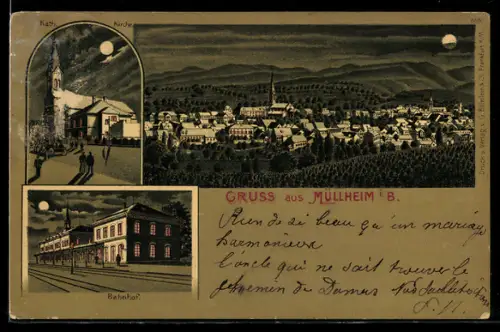 Kath. Kirche
Druck u. Verlag v.
Frankfurt a/M.
GRUSS aus MÜLLHEIM i/B.
Rien de si beau qu'un mariage
harmonieux
l'oncle qui ne sait trouver le
chemin de Damas
Bahnhof